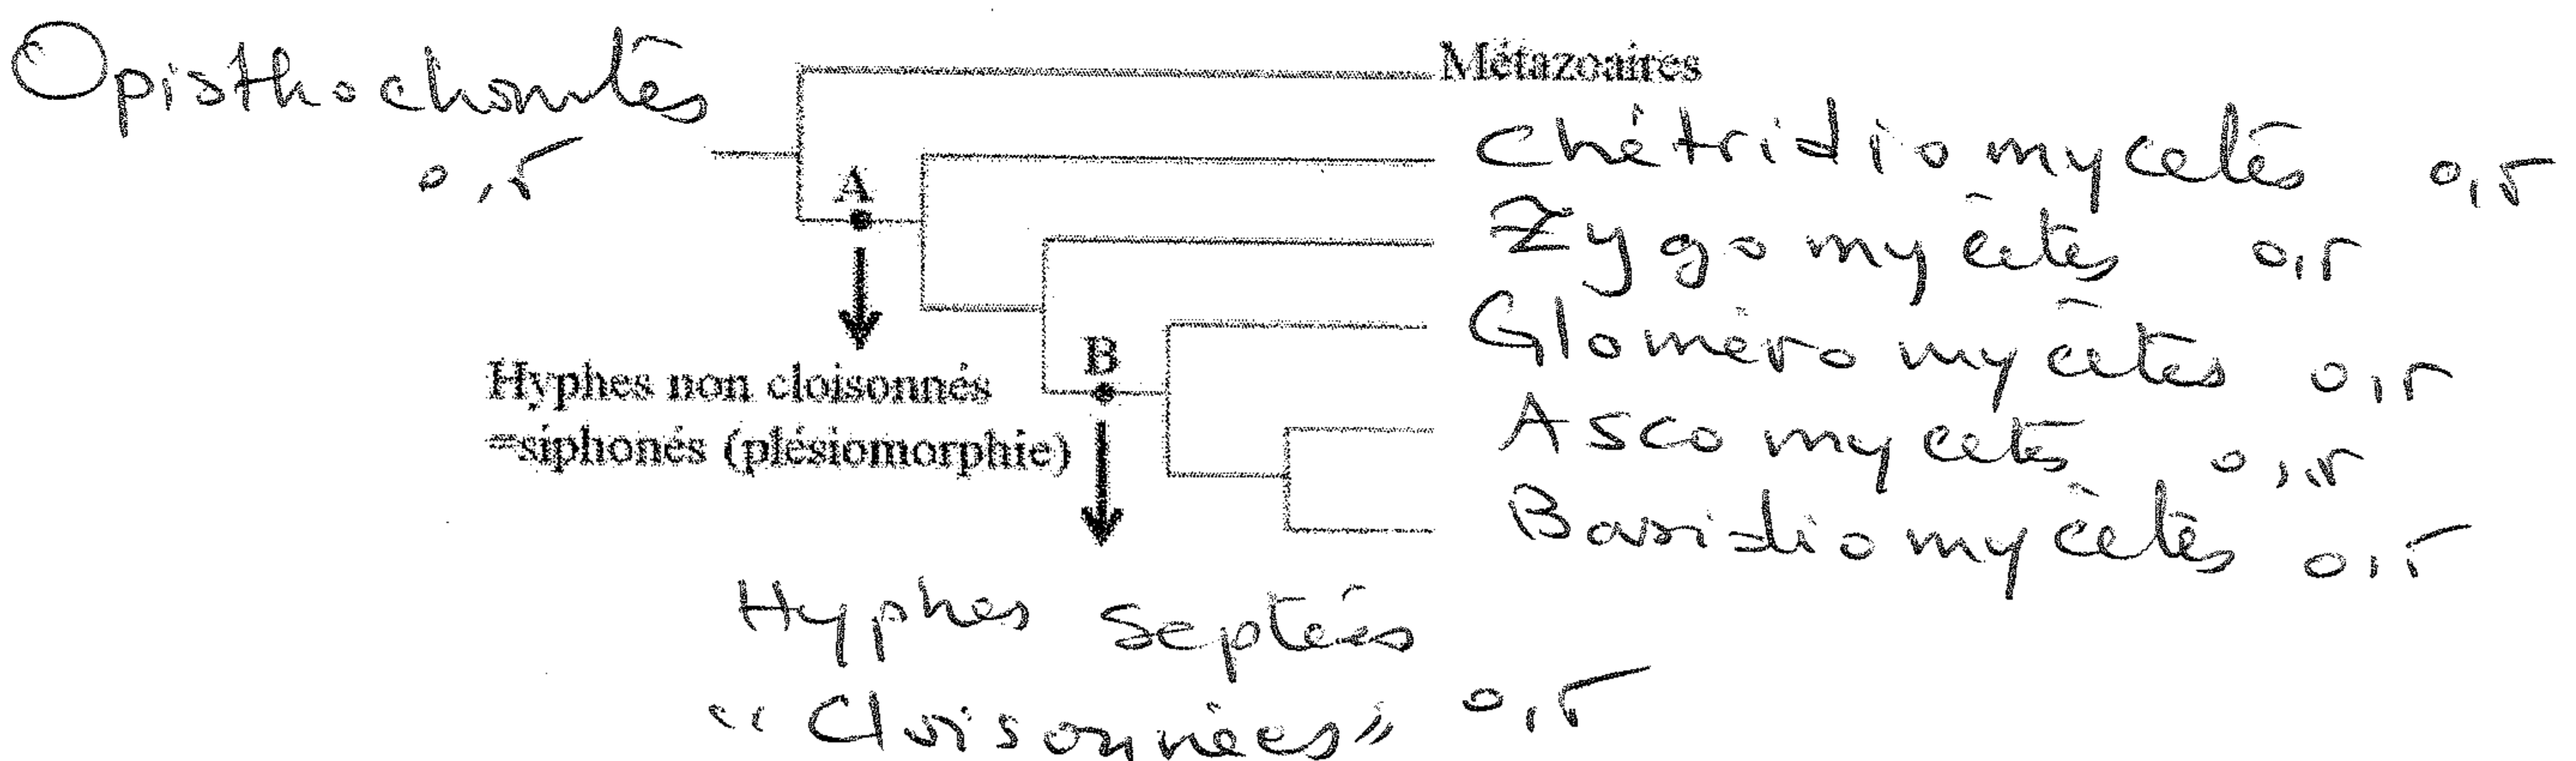 Opisthochontes
0,5
Métazoaires
Chétridiomycetès 0,5
Zygomycètes 0,5
Gloméromycètes 0,5
Ascomycetes 0,5
Basidiomycètes 0,5
A
Hyphes non cloisonnés
=siphonés (plésiomorphie)
B
Hyphes septées
"Cloisonnées" 0,5